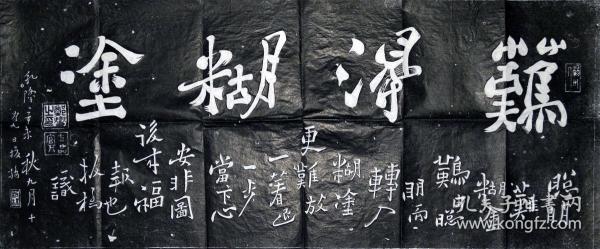 難得糊塗
聰明
難糊塗
難聰
明而
轉入
糊塗
更難放
一著退
一步
當下心
安非圖
後來福
報也
板橋
識
乾隆辛未秋九月十
有九日板橋
孔夫子旧书网
www.kongfz.com